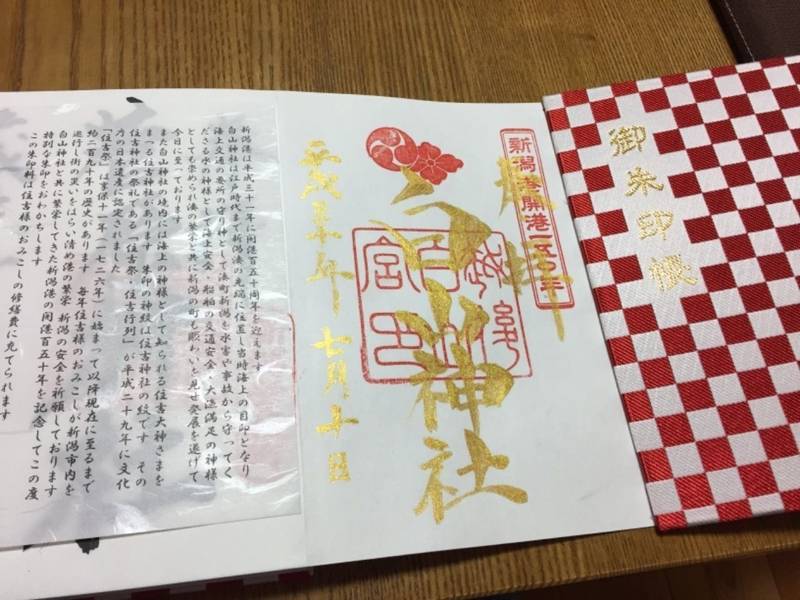 御朱印帳
新潟港開港一五〇年
奉拝
白山神社
平成三十年 七月十日
新潟港は平成三十一年に開港百五十周年を迎えます
白山神社は江戸時代まで新潟湊の先端に位置し当時海上の目印となり
海上交通の要所の守り神として湊町新潟を水害や事故から守ってく
ださる水の神様として海上安全・船舶の交通安全・大漁満足の神様
としても崇められ湊の繁栄と共に新潟の町も賑わいを見せ発展を遂げて
今日に至っております
また白山神社の境内には海上の神様として知られる住吉大神さまを
まつる住吉神社があります 朱印の神紋は住吉神社の紋です その
住吉神社の祭礼である「住吉祭・住吉行列」が平成二十九年に文化
庁の日本遺産に認定されました
「住吉祭」は享保十一年(一七二六年)に始まって以降現在に至るまで
約二百九十年の歴史があります 毎年住吉様のおみこしが新潟市内を
巡行し街の災いをはらい清め港の繁栄 新潟の安全を祈願しております
白山神社と共に繁栄してきた新潟港の開港百五十年を記念してこの度
特別な朱印をおわかちします
この朱印料は住吉様のおみこしの修繕費に充てられます